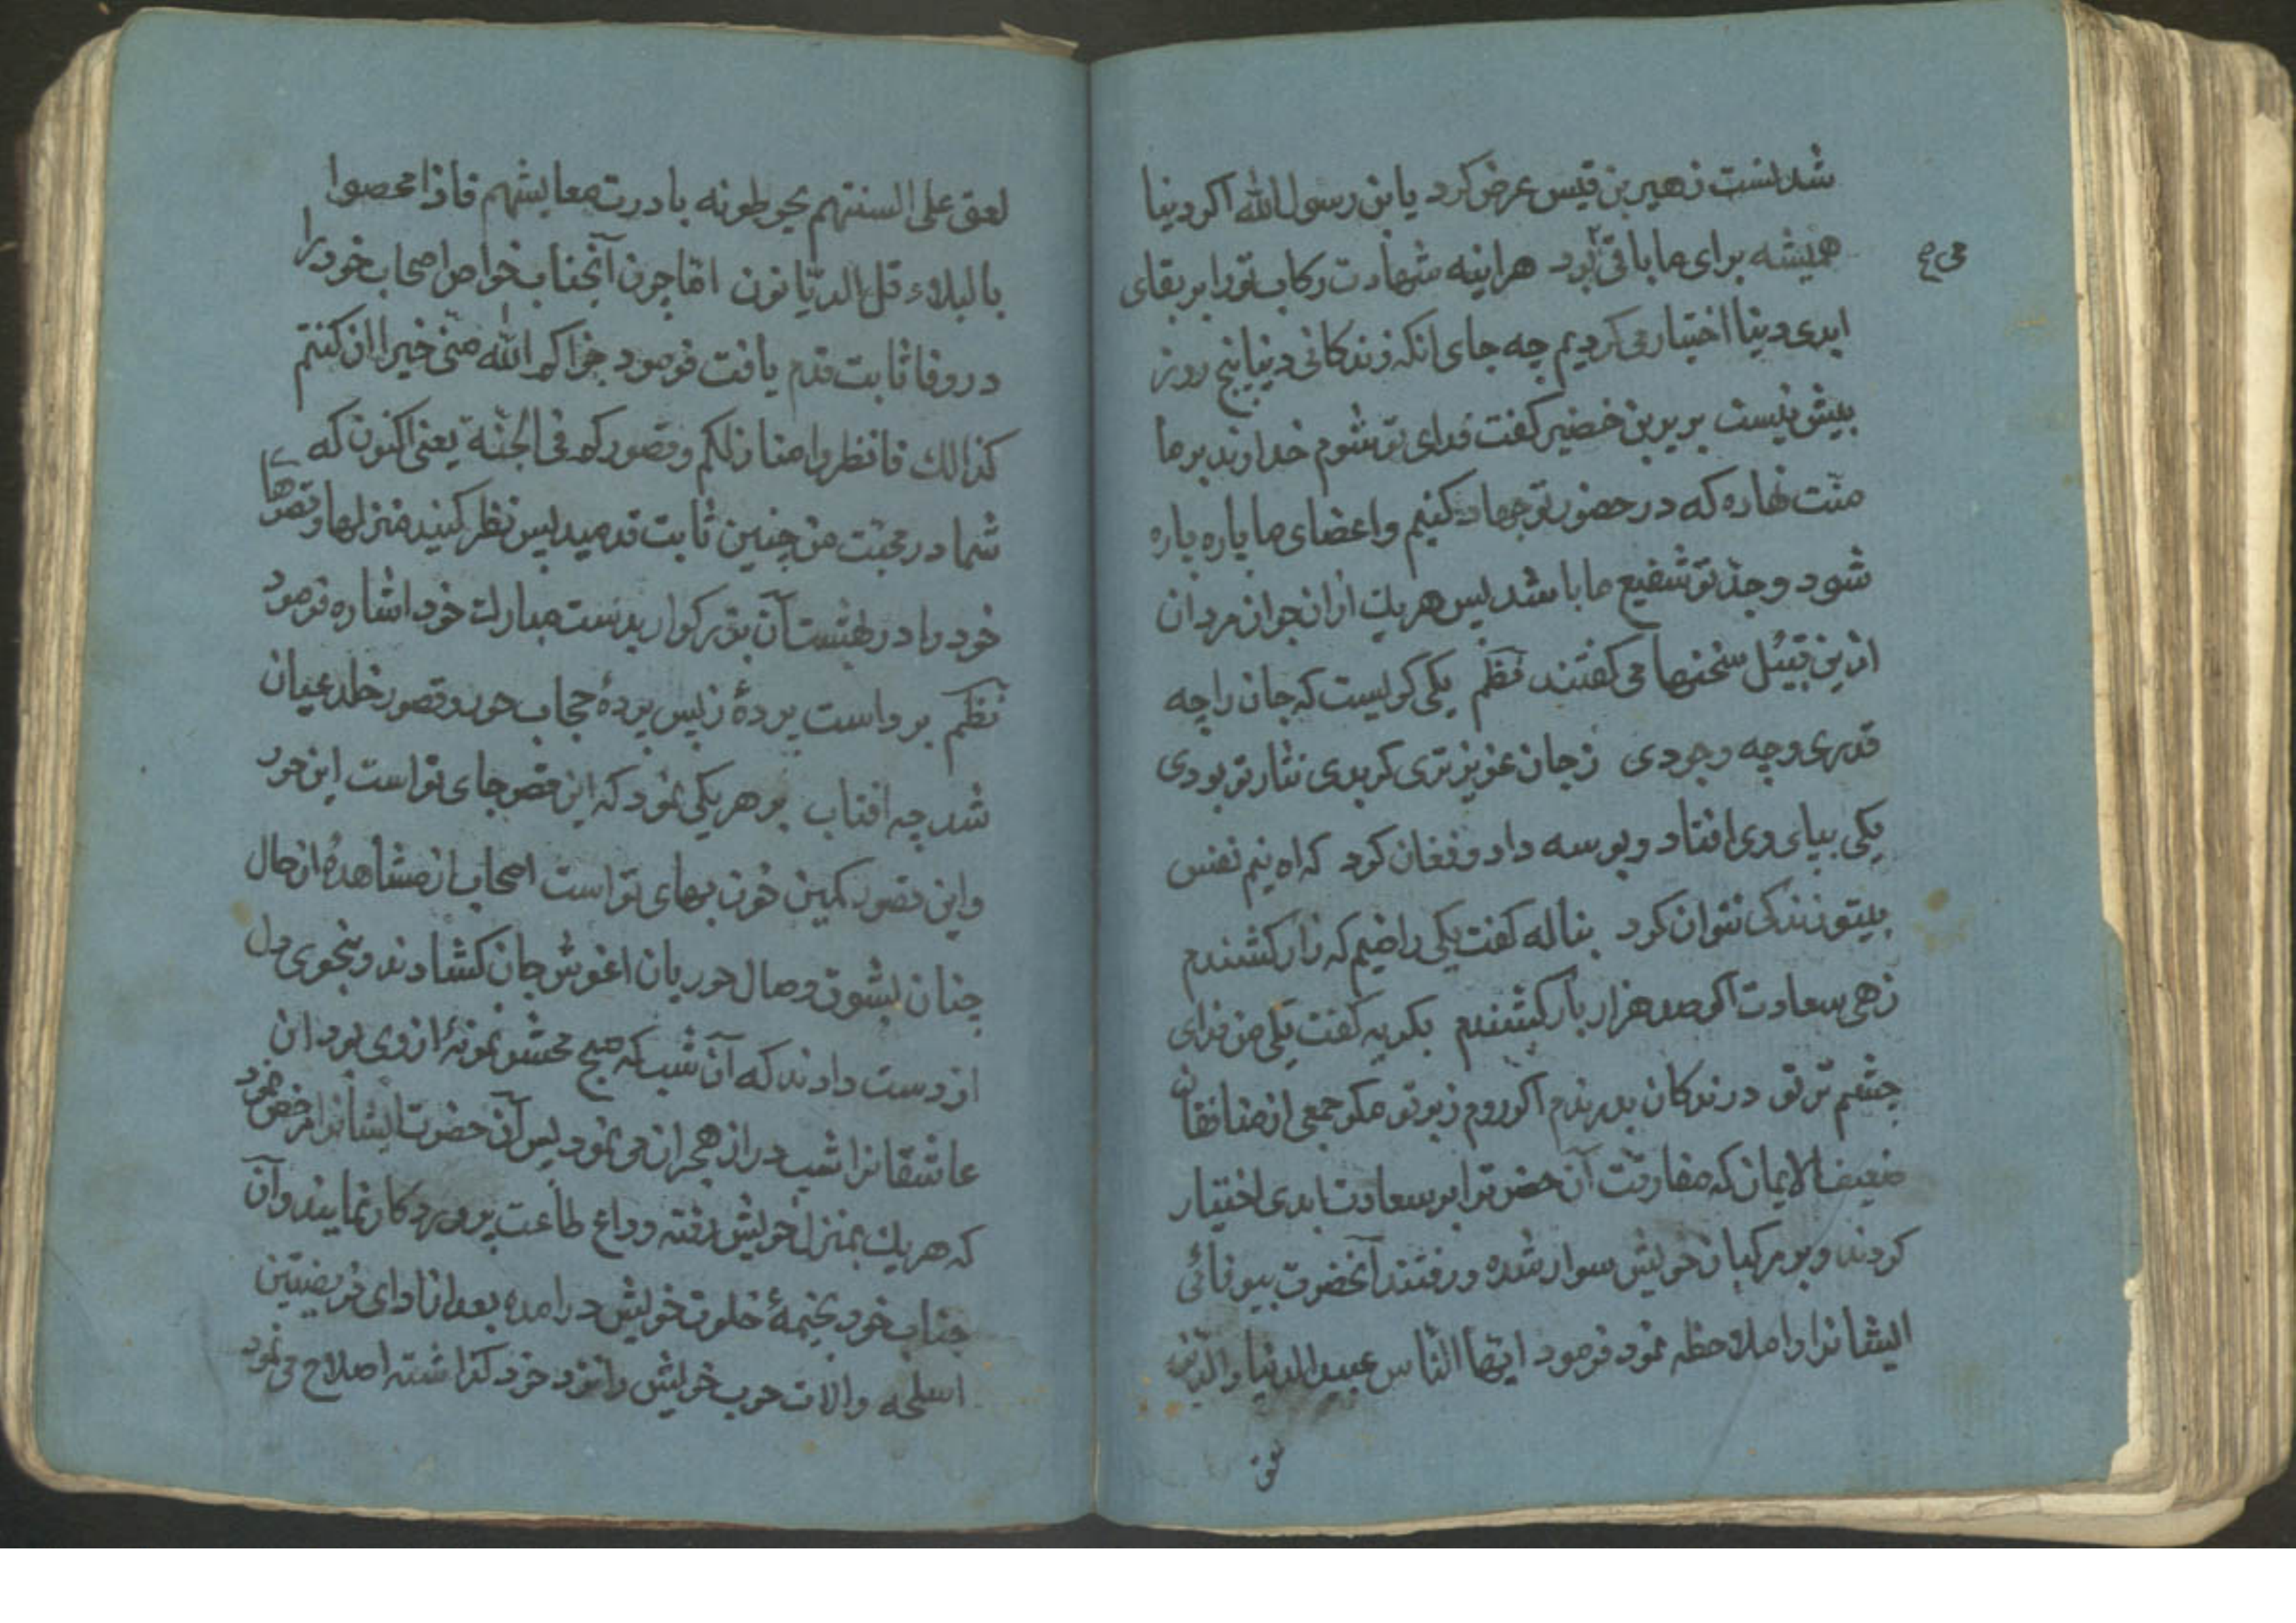 شدنست زهیر بن قیس عرض کرد یابن رسول الله اکر دینا
همیشه براى ما باقى بود هراینه شهادت رکاب تورا بر بقاى
می صح
ابدى دینا اختیار می کردیم چه جاى انکه زندکانى دینا پنج روز
بیش نیست بریر بن خضیر کفت فداى تو شوم خداوند بر ما
منّت نهاده که در حضور تو جهاد کنیم واعضاى ما پاره پاره
شود وجدّ تو شفیع ما باشد پس هریك ازان جوان مردان
ازین قبیل سخنها می کفتند نظم یکى کریست که جان را چه
قدرى وچه وجودى زجان عزیز ترى کر بدى نثار تو بودى
یکى بپاى وى افتاد وبوسه داد وفغان کرد که اه نیم نفس
بیتو زندکى نتوان کرد بناله کفت یکى راضیم که زار کشندم
زهى سعادت اکر صد هزار بار کشندم بکریه کفت یکى من فداى
چشم تر تو درندکان بدرندم اکر روم زبر تو مکر جمعى از منافقان
ضعیف الایمان که مفارقت آن حضرترا بر سعادت ابدى اختیار
کردند وبر مرکبان خویش سوار شده ورفتند آنحضرت بیوفائى
ایشانرا ملاحظه نمود فرمود ایها الناس عبید الدنیا والدّین
لعق
لعق على السنتهم یحوطونه بادرت معایشهم فاذا محصوا
بالبلاء قل الدیّانون امّا چون آنجناب خواص اصحاب خودرا
در وفا ثابت قدم یافت فرمود جزاکم الله منى خیرا ان کنتم
کذالك فانظروا منازلکم وقصورکم فى الجنّة یعنى اکنون که
شما در محبّت من چنین ثابت قدمید پس نظر کنید منزلها وقصرهاى
خودرا در بهشت آن بزرکوار بدست مبارك خود اشاره فرمود
نظم برواست پردهٔ زپس پردهٔ حجاب حور وقصور خلد عیان
شد چه افتاب بر هریکى نمود که این قصر جاى تواست این حور
واین قصور کمین خون بهاى تواست اصحاب از مشاهدهٔ ان حال
چنان بشوق وصال حوریان اغوش جان کشادند وبنجوى دل
از دست دادند که آن شب که صبح محشر نمونهٔ از وى بود ان
عاشقانرا شب دراز هجران می نمود پس آن حضرت ایشانرا مرخص نمود
که هریك بمنزل خویش رفته وداع طاعت پروردکار نمایند وآن
جناب خود بخیمهٔ خلوت خویش درامده بعد از اداى فریضتین
اسلحه والات حرب خویش را نزد خود کذاشته اصلاح می نمود